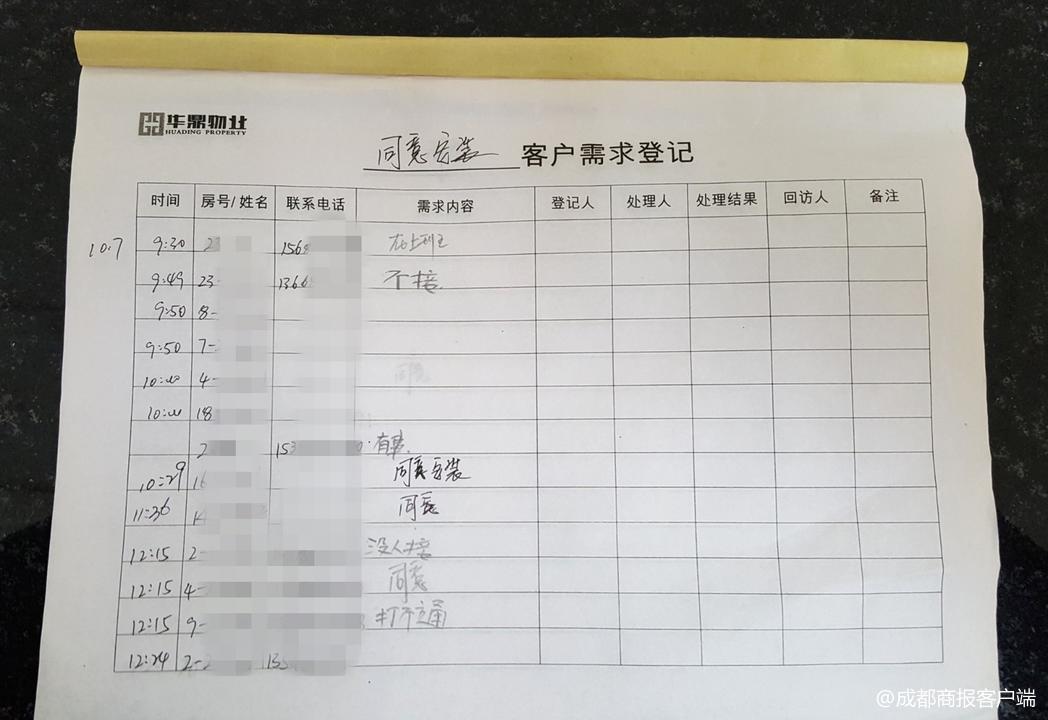 华鼎物业
HUADING PROPERTY
同意安装 客户需求登记
时间 房号/姓名 联系电话 需求内容 登记人 处理人 处理结果 回访人 备注
10.7 9:30 2 156 在上班
9:49 23- 1366 不接
9:50 8-
9:50 7-
10:00 4- 同意
10:00 18
2 153 有事
10:29 16 同意安装
11:36 14 同意
12:15 2- 没人接
12:15 4- 同意
12:15 9- 打不通
12:24 2-2 133
@成都商报客户端